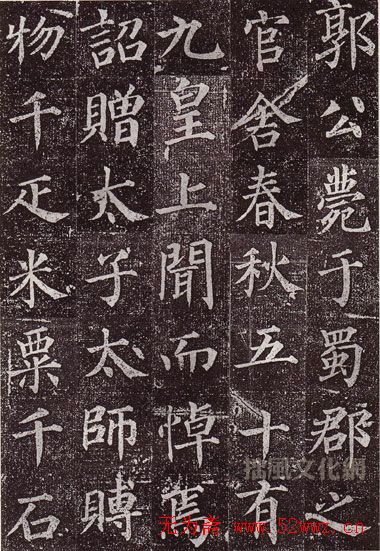 郭公薨于蜀郡之
官舍春秋五十有
九皇上聞而悼焉
詔贈太子太師賻
物千疋米粟千石
文化網
无为斋 www.52wwz.cn